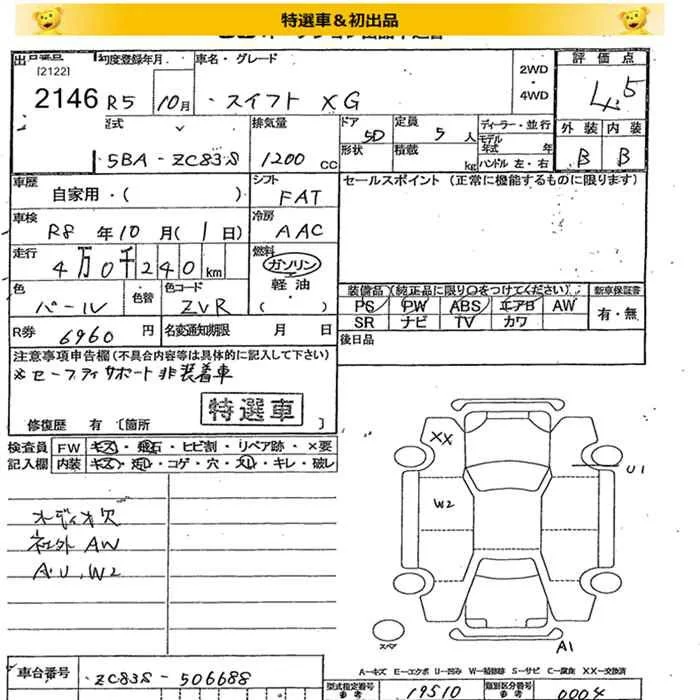 特選車＆初出品
出品番号 初度登録年月 車名・グレード 2WD 評価点
[2122]
2146 R5 10月 スイフト XG ・ 4WD 4.5
型式 排気量 ドア 5D 定員 5人 ディーラー・並行 外装 内装
5BA-ZC83S 1200cc 形状 積載 kg モデル年式 年 ハンドル 左・右 B B
車歴 シフト セールスポイント (正常に機能するものに限ります)
自家用・( ) FAT
車検 冷房
R8年10月(1日) AAC
走行 燃料
4万0千240km ガソリン
軽油
( )
色 色替 色コード 装備品(純正品に限り○をつけてください) 新車保証書
パール ZVR PS PW ABS エアB AW 有・無
SR ナビ TV カワ
R券 6960円 名変通知期限 月 日 後日品
注意事項申告欄(不具合内容等は具体的に記入して下さい)
※セーフティサポート非装着車
特選車
修復歴 有 〔箇所 〕
検査員 FW キズ・飛石・ヒビ割・リペア跡・×要
記入欄 内装 キズ・汚レ・コゲ・穴・スレ・キレ・破レ
XX
U1
W2
オーディオ欠
社外AW
A.U.W2
スペア
A1
車台番号 ZC83S-506688
A-キズ E-エクボ U-凹み W-補修跡 S-サビ C-腐食 XX-交換済
型式指定番号 参考 19510 類別区分番号 参考 0004